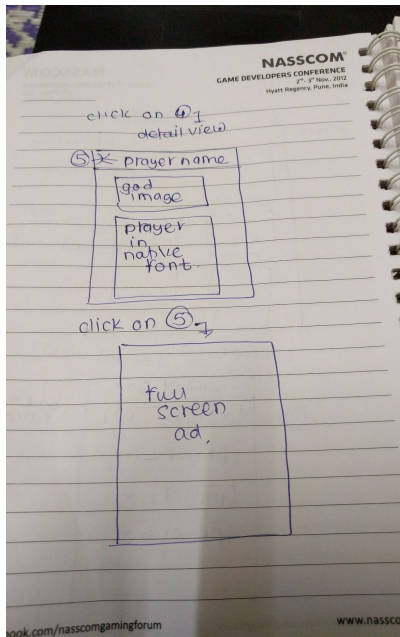 NASSCOM®
GAME DEVELOPERS CONFERENCE
2nd- 3rd Nov., 2012
Hyatt Regency, Pune, India
click on ④
detail view
⑤ prayer name
god
image
prayer
in
native
font.
click on ⑤
Full
screen
ad.
ook.com/nasscomgamingforum
www.nassc